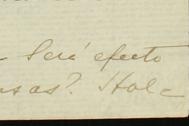 Será efecto
sas? Hole